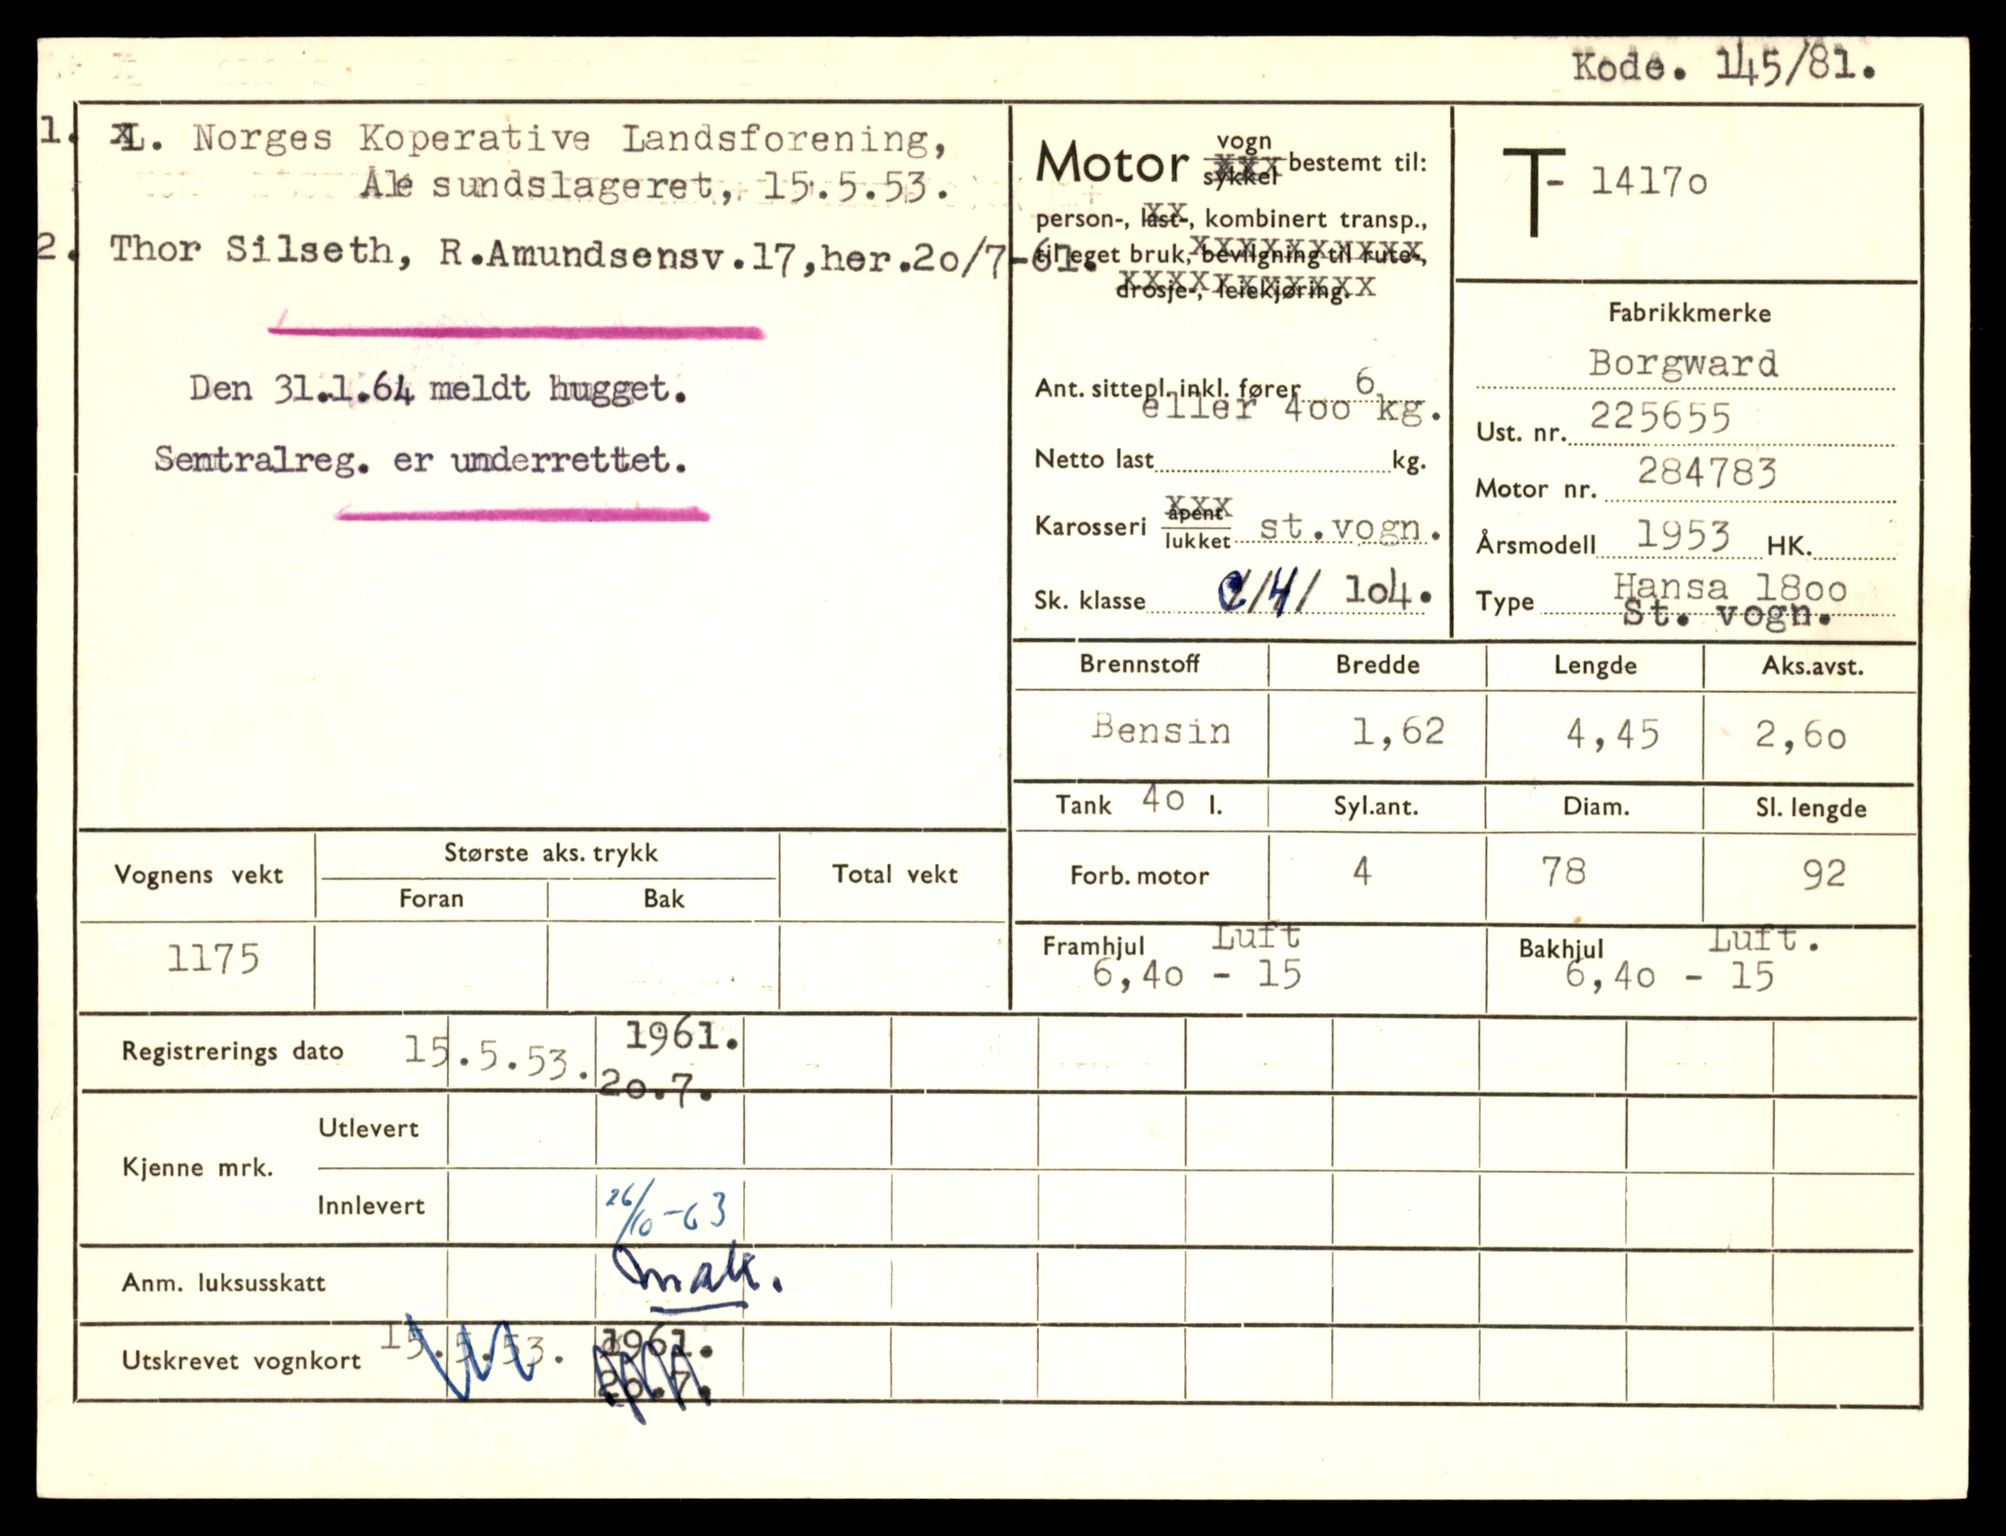 Kode. 145/81.
1. L. Norges Koperative Landsforening,
Åle sundslageret, 15.5.53.
2. Thor Silseth, R.Amundsensv.17,her.2o/7-61.
Den 31.1.64 meldt hugget.
Sentralreg. er underrettet.
Motor vogn
sykkel bestemt til:
person-, last-, kombinert transp.,
til eget bruk, bevilgning til rute-,
drosje-, leiekjøring.
Ant. sittepl. inkl. fører 6
eller 4oo kg.
Netto last kg.
Karosseri åpent
lukket st.vogn.
Sk. klasse /4/ 1o4.
T- 1417o
Fabrikkmerke
Borgward
Ust. nr. 225655
Motor nr. 284783
Årsmodell 1953 HK.
Type Hansa 18oo
St. vogn.
Brennstoff Bredde Lengde Aks.avst.
Bensin 1,62 4,45 2,6o
Tank 4o l. Syl.ant. Diam. Sl. lengde
Forb. motor 4 78 92
Framhjul Luft
6,4o - 15
Bakhjul Luft.
6,4o - 15
Vognens vekt Største aks. trykk Total vekt
Foran Bak
1175
Registrerings dato 15.5.53. 1961.
2o.7.
Kjenne mrk.
Utlevert
Innlevert 26/10-63
Anm. luksusskatt
Utskrevet vognkort 15.5.53. 1961.
2o.7.